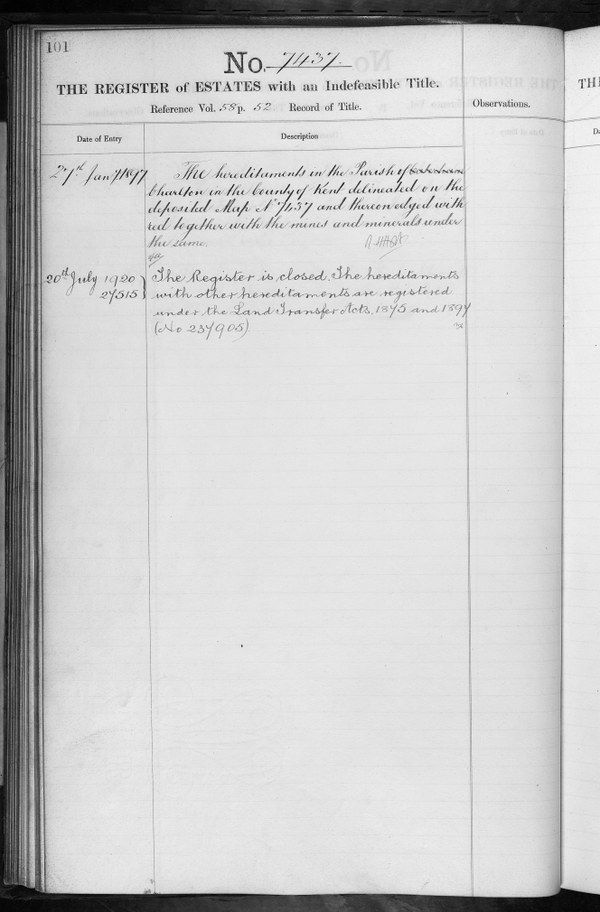 101
No. 7437.
THE REGISTER of ESTATES with an Indefeasible Title.
Reference Vol. 58 p. 52 Record of Title.
Observations.
Date of Entry
Description
27th Jany 1877
The hereditaments in the Parish of
Charlton in the County of Kent delineated on the
deposited Map No 7437 and thereon edged with
red together with the mines and minerals under
the same.
20th July 1920
27515
The Register is closed. The hereditaments
with other hereditaments are registered
under the Land Transfer Acts, 1875 and 1897
(No 237905)